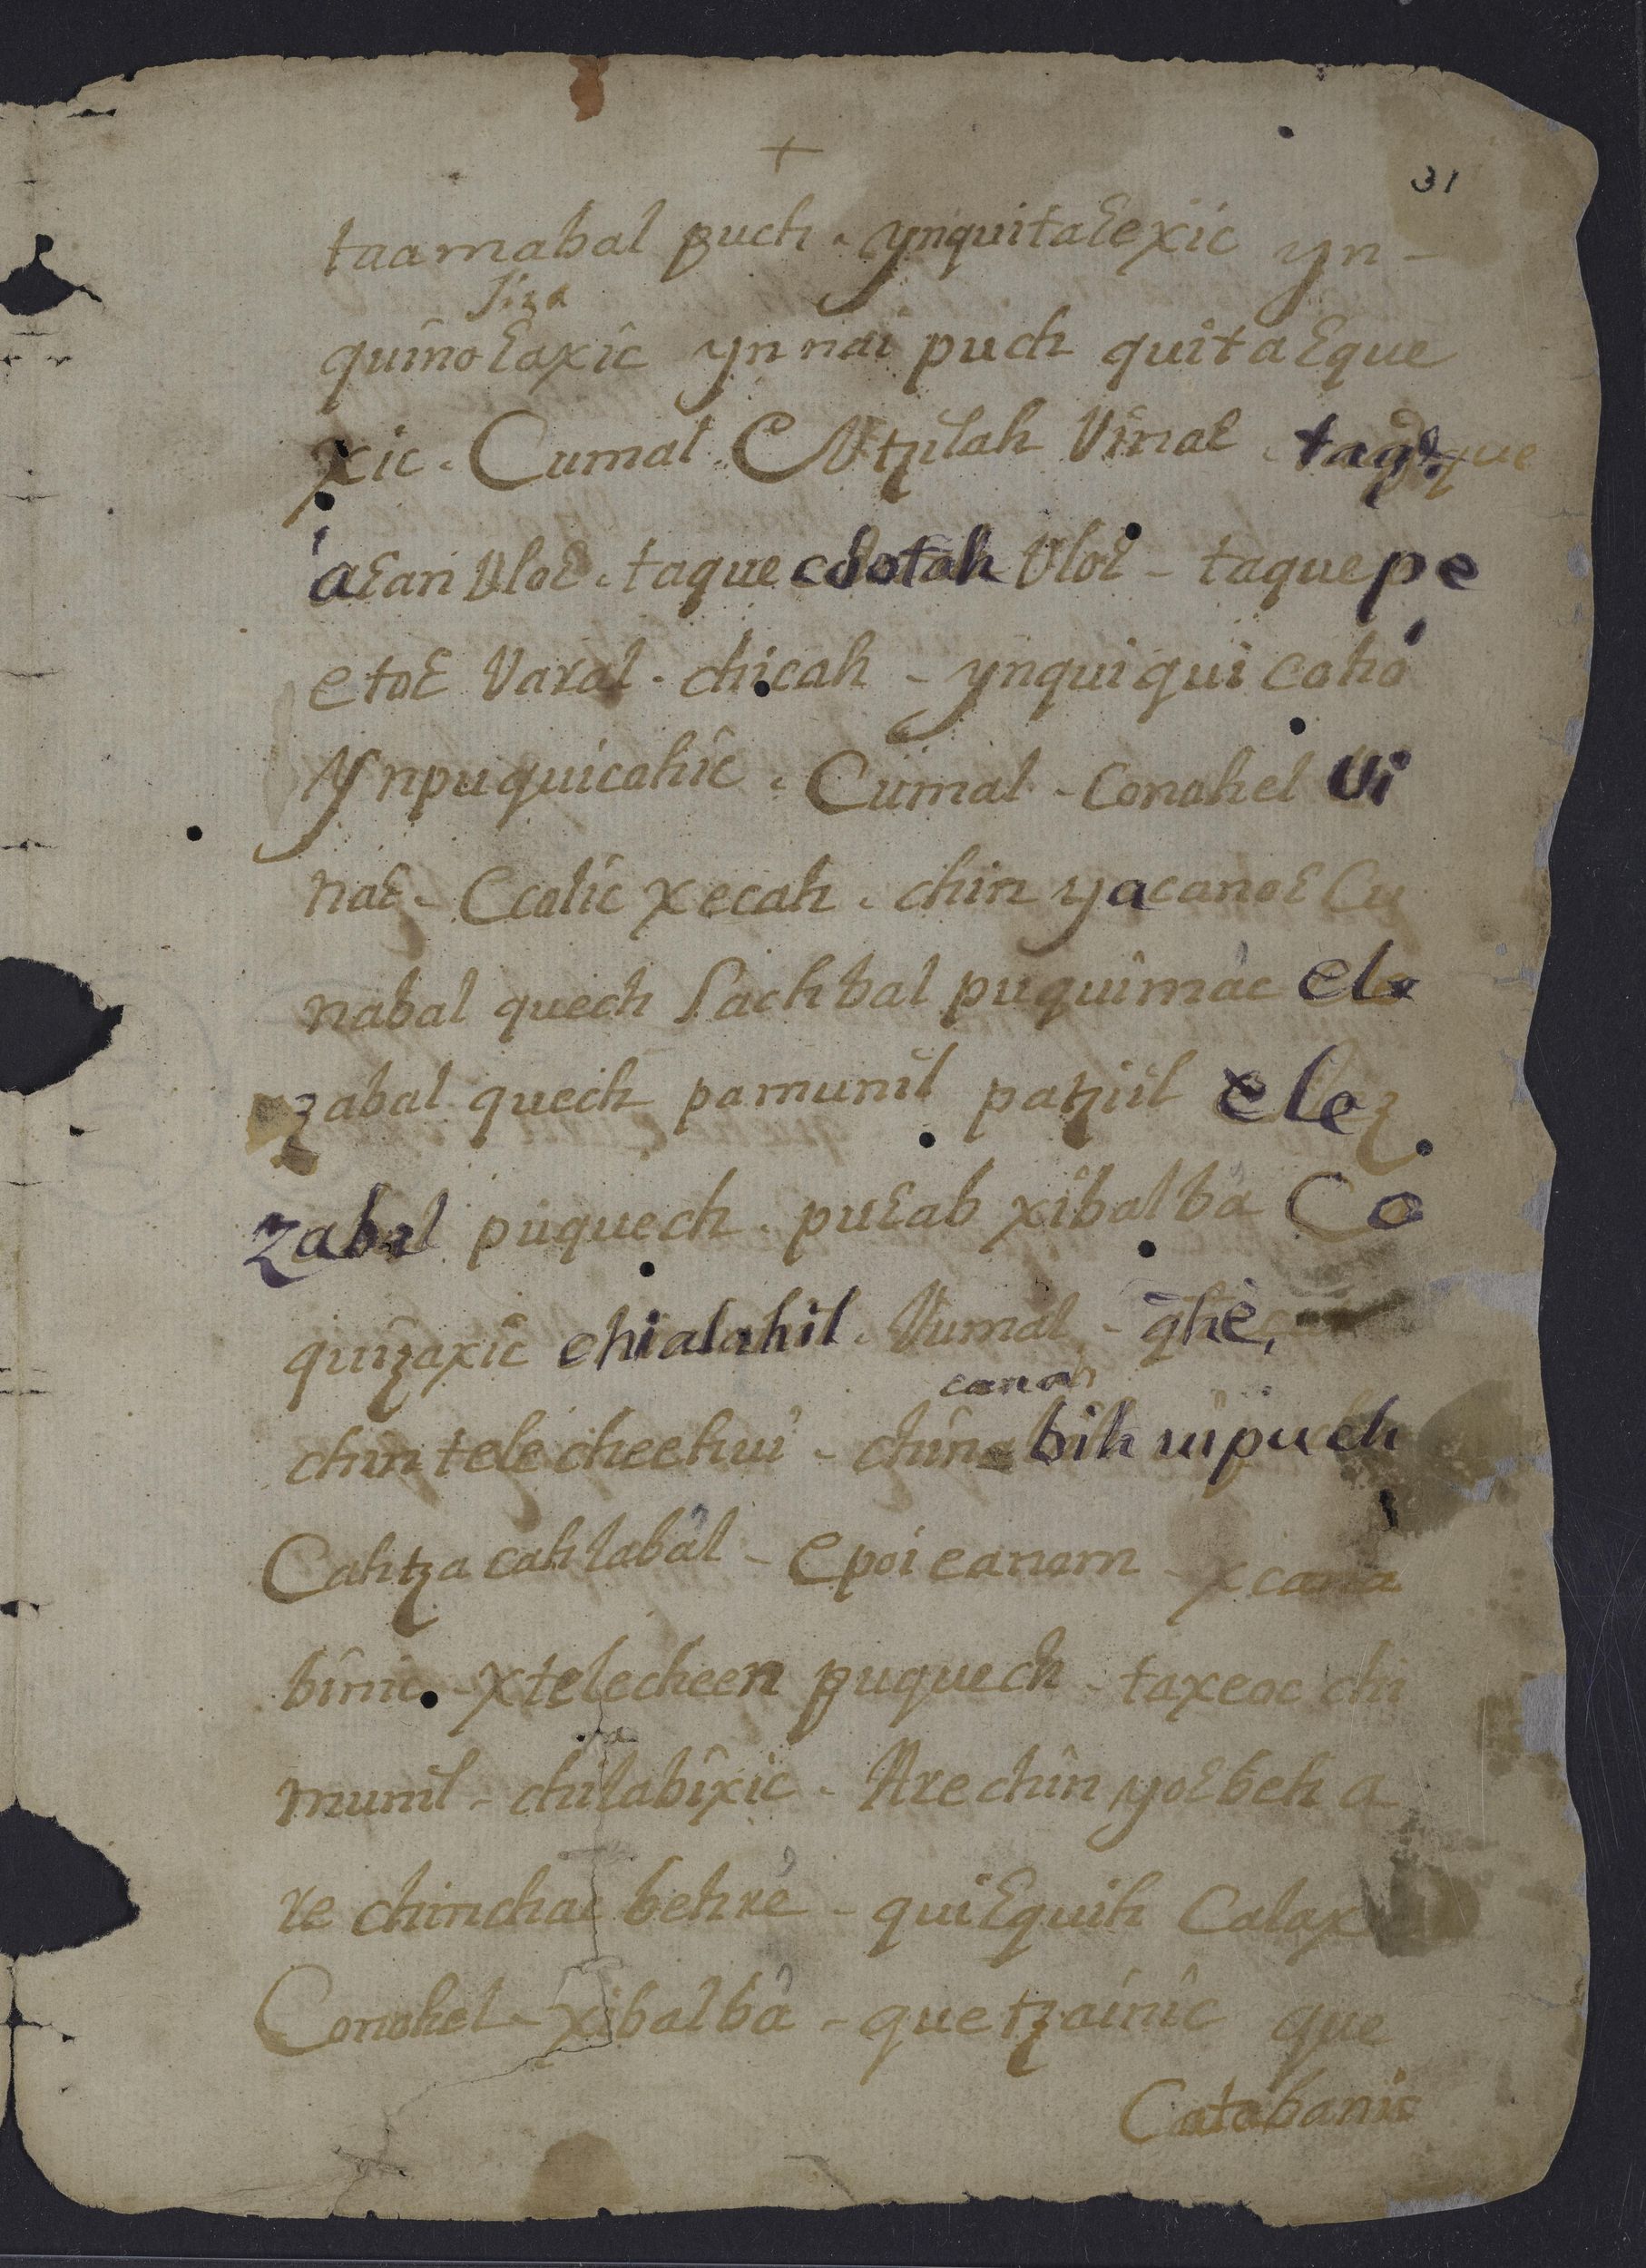 +
31
taamabal puch - ynquitaɛexic yn-
Siza
quînoɛaxîc yn nai puch quîtaɛque
xic. Cumal. C Vtzilah Vinaɛ. taqueque
aɛan Vloɛ. taque cɛotah Vloɛ - taque pe
etoɛ Varal. chicah - ynquiqui cohó
Ynpuquicohîc. Cumal - Conohel Vi
naɛ - Ccolîc xecah. chin yacanoɛ Cu
nabal quech Sachbal puquîmàc ele
zabal quech pamunîl patziil elez
zabal puquech. puɛab xîbalbà Co
quîzaxîc chialahil. Vumal - qhe,
canah
chin telecheehuì - chîna bih uìpuch
Cahtza cahlabàl - Epoi eanom - xcana
bînic - xtelecheen puquech - taxeoc chi
munîl - chilabîxic - Are chîn yoɛbeh a
re chinchac behrè - quiɛquih Calax
Conohel - xîbalbà - quetzaînîc que
Catabanic